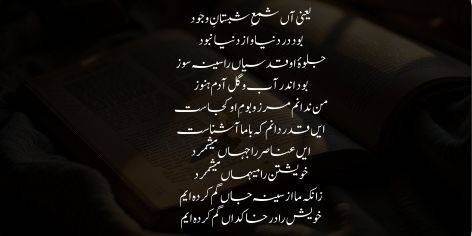 یعنی آں شمع شبستانِ وجود
بود در دنیا و از دنیا نبود
جلوۂ او قدسیاں را سینہ سوز
بود اندر آب و گل آدم ہنوز
من ندانم مرز و بوم او کجاست
ایں قدر دانم کہ با ما آشناست
ایں عناصر را جہاں میشمرد
خویشتن را میہماں میشمرد
زانکہ ما از سینہ جاں گم کردہ ایم
خویش را در خاکداں گم کردہ ایم